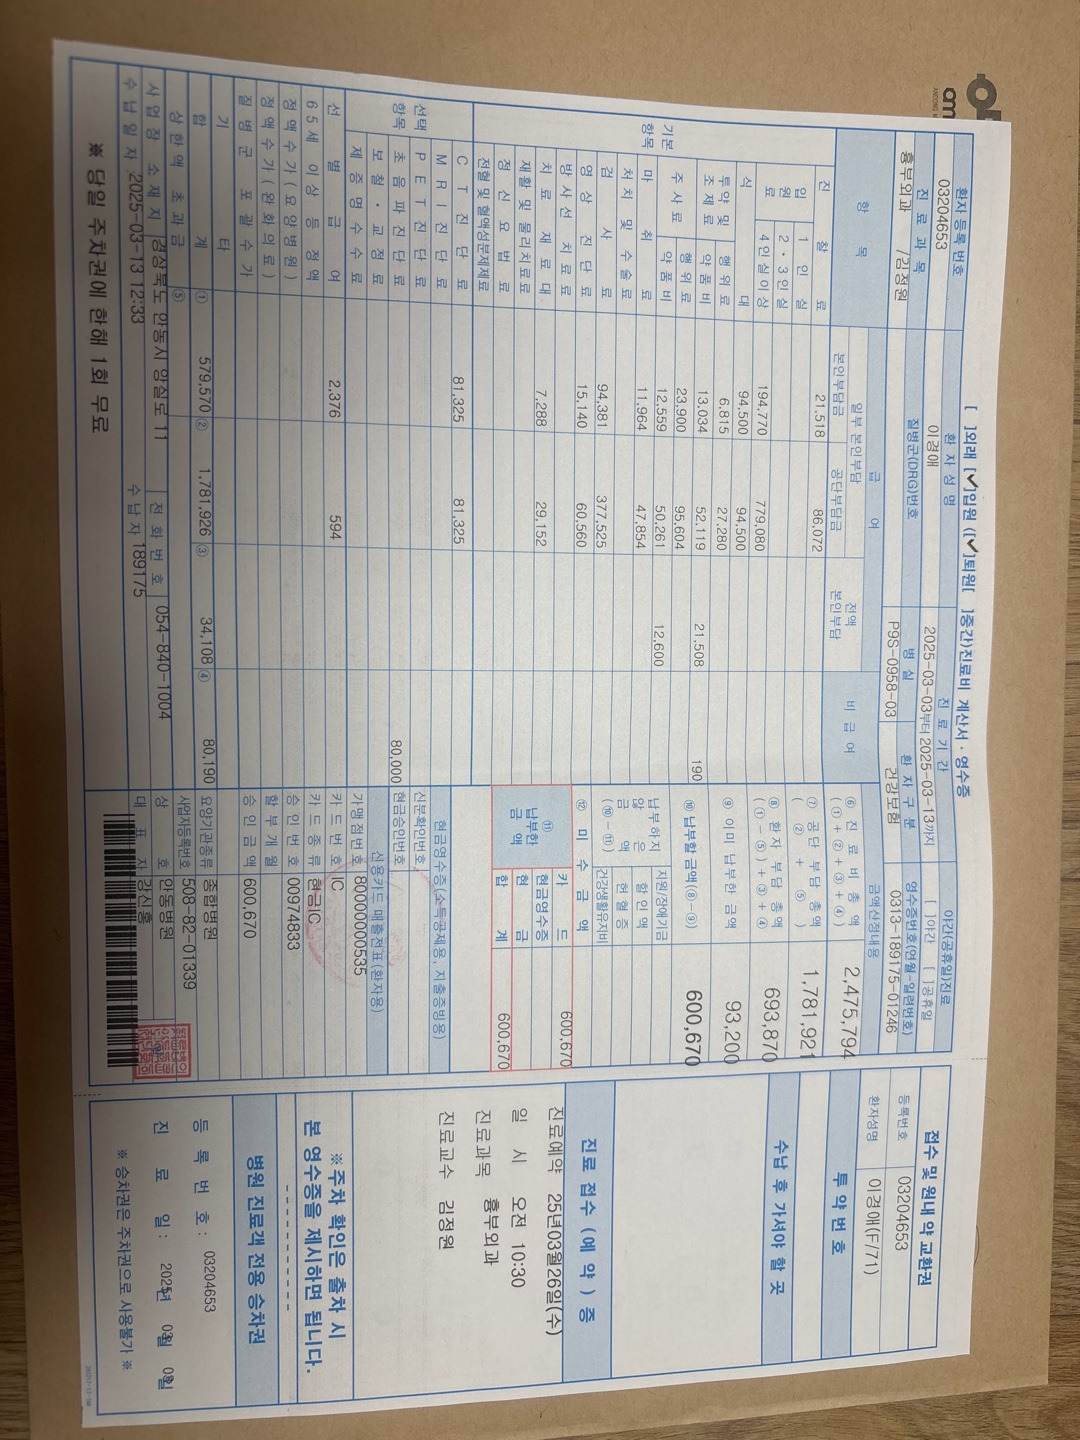 [ ]외래 [✓]입원 ([✓]퇴원[ ]중간)진료비 계산서 · 영수증
환자등록번호 환 자 성 명 진 료 기 간 야간(공휴일)진료
03204653 이경애 2025-03-03부터 2025-03-13까지 [ ]야간 [ ]공휴일
진 료 과 목 질병군(DRG)번호 병 실 환 자 구 분 영수증번호(연월-일련번호)
흉부외과 /김정원 P9S-0958-03 건강보험 0313-189175-01246
항 목 급 여 비 급 여 금액산정내용
일부 본인부담 전액 본인부담
본인부담금 공단부담금
기본항목
진 찰 료 21,518 86,072
입원료 1 인 실
2 · 3인실
4인실이상 194,770 779,080
식 대 94,500 94,500
투약 및 조제료 행위료 6,815 27,280
약품비 13,034 52,119 21,508 190
주사료 행위료 23,900 95,604
약품비 12,559 50,261 12,600
마 취 료 11,964 47,854
처치 및 수술료
검 사 료 94,381 377,525
영 상 진 단 료 15,140 60,560
방사선 치료료
치 료 재 료 대 7,288 29,152
재활 및 물리치료료
정 신 요 법 료
전혈 및 혈액성분제제료
선택항목
C T 진 단 료 81,325 81,325
M R I 진 단 료
P E T 진 단 료
초 음 파 진 단 료 80,000
보 철 · 교 정 료
제 증 명 수 수 료
선 별 급 여 2,376 594
6 5 세 이 상 등 정 액
정 액 수 가 ( 요 양 병 원 )
정 액 수 가 ( 완 화 의 료 )
질 병 군 포 괄 수 가
기 타
합 계 ① 579,570 ② 1,781,926 ③ 34,108 ④ 80,190
상 한 액 초 과 금 ⑤
⑥ 진 료 비 총 액 (①+②+③+④) 2,475,794
⑦ 공 단 부 담 총 액 (②+⑤) 1,781,921
⑧ 환 자 부 담 총 액 (①-⑤)+③+④ 693,870
⑨ 이미 납부한 금액 93,200
⑩ 납부할 금액(⑧-⑨) 600,670
납부하지 않은 금액 (⑩-⑪)
지원/장애기금
할 인 액
헌 혈 증
건강생활유지비
⑫ 미 수 금 액
⑪ 납부한 금 액
카 드 600,670
현금영수증
현 금
합 계 600,670
현금영수증(소득공제용, 지출증빙용)
신분확인번호
현금승인번호
신용카드 매출전표(환자용)
가맹점번호 80000000535
카 드 번 호 IC
카 드 종 류 현금IC
승 인 번 호 00974833
할 부 개 월
승 인 금 액 600,670
요양기관종류 종합병원
사업자등록번호 508-82-01339
상 호 안동병원
대 표 자 강신홍
사 업 장 소 재 지 경상북도 안동시 앙실로 11 전 화 번 호 054-840-1004
수 납 일 자 2025-03-13 12:33 수 납 자 189175
※ 당일 주차권에 한해 1회 무료
접수 및 원내 약 교환권
등록번호 03204653
환자성명 이경애(F/71)
투 약 번 호
수납 후 가셔야 할 곳
진 료 접 수 ( 예 약 ) 증
진료예약 25년03월26일(수)
일 시 오전 10:30
진료과목 흉부외과
진료교수 김정원
※ 주차 확인은 출차 시
본 영수증을 제시하면 됩니다.
병원 진료객 전용 승차권
등 록 번 호 : 03204653
진 료 일 : 2025년
※ 승차권은 주차권으로 사용불가 ※